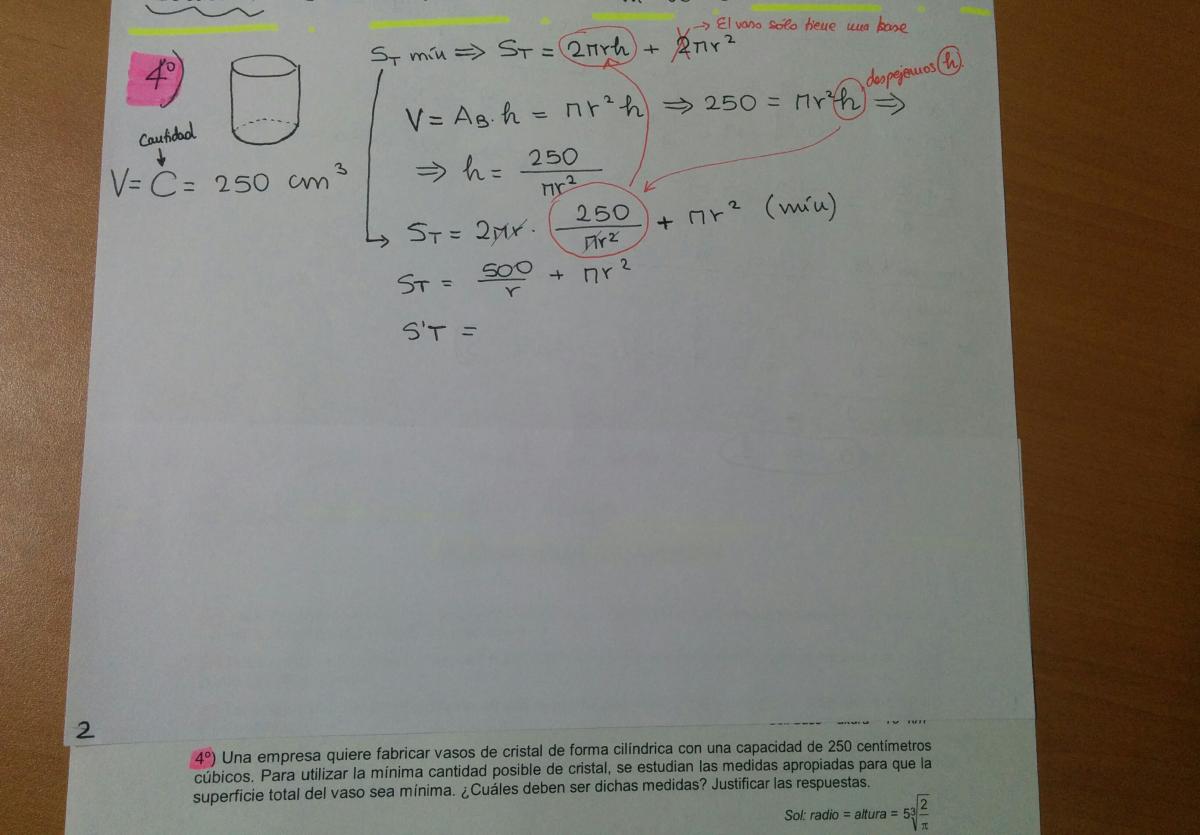 → El vaso sólo tiene una base
4º)
S_T mín ⇒ S_T = 2πrh + 2πr²
despejamos h.
V = A_B · h = πr²h ⇒ 250 = πr²h ⇒
Cantidad
↓
V = C = 250 cm³
⇒ h = 250/πr²
S_T = 2πr · 250/πr² + πr² (mín)
S_T = 500/r + πr²
S'T =
2
4º) Una empresa quiere fabricar vasos de cristal de forma cilíndrica con una capacidad de 250 centímetros
cúbicos. Para utilizar la mínima cantidad posible de cristal, se estudian las medidas apropiadas para que la
superficie total del vaso sea mínima. ¿Cuáles deben ser dichas medidas? Justificar las respuestas.
Sol: radio = altura = 5∛(2/π)